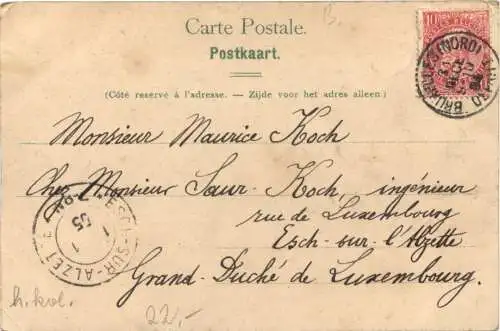 Carte Postale.
Postkaart.
(Côté reservé à l'adresse. — Zijde voor het adres alleen.)
10
BRUXELLES (NORD)
Monsieur Maurice Koch
Chez Monsieur Saur-Koch, ingénieur
rue de Luxembourg
Esch-sur-l'Alzette
Grand-Duché de Luxembourg.
ESCH-SUR-ALZETTE
1
1
05
h. kol.
22.-
B.